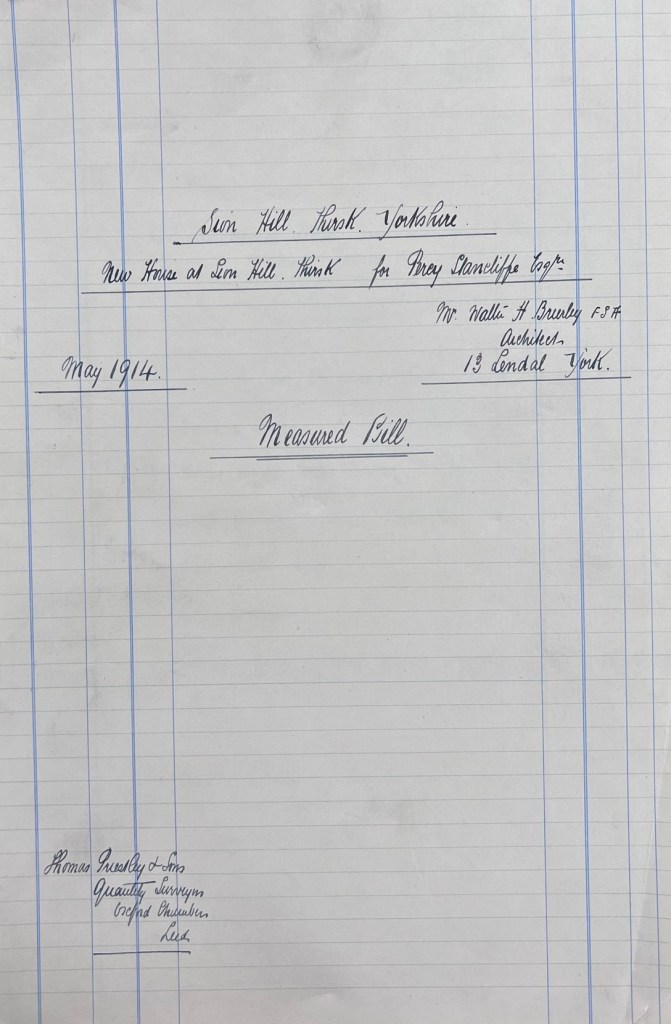 Sion Hill. Thirsk. Yorkshire.
New House at Sion Hill. Thirsk for Percy Stancliffe Esqre
Mr Walter H Brierley FSA
Architect
13 Lendal York.
May 1914.
Measured Bill.
Thomas Priestley & Sons
Quantity Surveyors
Oxford Chambers
Leeds